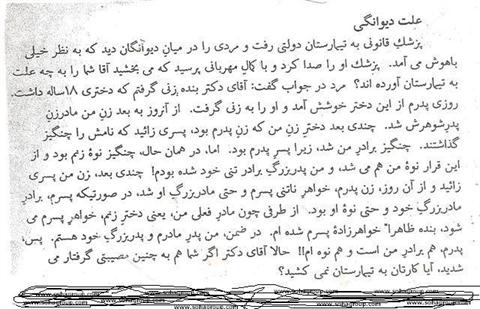 علت دیوانگی
پزشک قانونی به تیمارستان دولتی رفت و مردی را در میان دیوانگان دید که به نظر خیلی
باهوش می آمد. پزشک او را صدا کرد و با کمال مهربانی پرسید که می بخشید آقا شما را به چه علت
به تیمارستان آورده اند؟ مرد در جواب گفت: آقای دکتر بنده زنی گرفتم که دختری ۱۸ساله داشت.
روزی پدرم از این دختر خوشش آمد و او را به زنی گرفت. از آنروز به بعد زن من مادرزن
پدرشوهرش شد. چندی بعد دختر زن من که زن پدرم بود، پسری زائید که نامش را چنگیز
گذاشتند. چنگیز برادر من شد، زیرا پسر پدرم بود. اما، در همان حال، چنگیز نوهٔ زنم بود و از
این قرار نوهٔ من هم می شد، و من پدربزرگ برادر تنی خود شده بودم! چندی بعد، زن من پسری
زائید و از آن روز، زن پدرم، خواهر ناتنی پسرم و حتی مادربزرگ او شد، در صورتیکه پسرم، برادر
مادربزرگ خود و حتی نوهٔ او بود. از طرفی چون مادر فعلی من، یعنی دختر زنم، خواهر پسرم می
شود، بنده ظاهراً خواهرزادهٔ پسرم شده ام. در ضمن، من پدر مادرم و پدربزرگ خود هستم. پس،
پدرم، هم برادر من است و هم نوه ام!! حالا آقای دکتر اگر شما هم به چنین مصیبتی گرفتار می
شدید، آیا کارتان به تیمارستان نمی کشید؟
www.sohagroup.com www.sohagroup.com www.sohagroup.com www.sohagroup.com